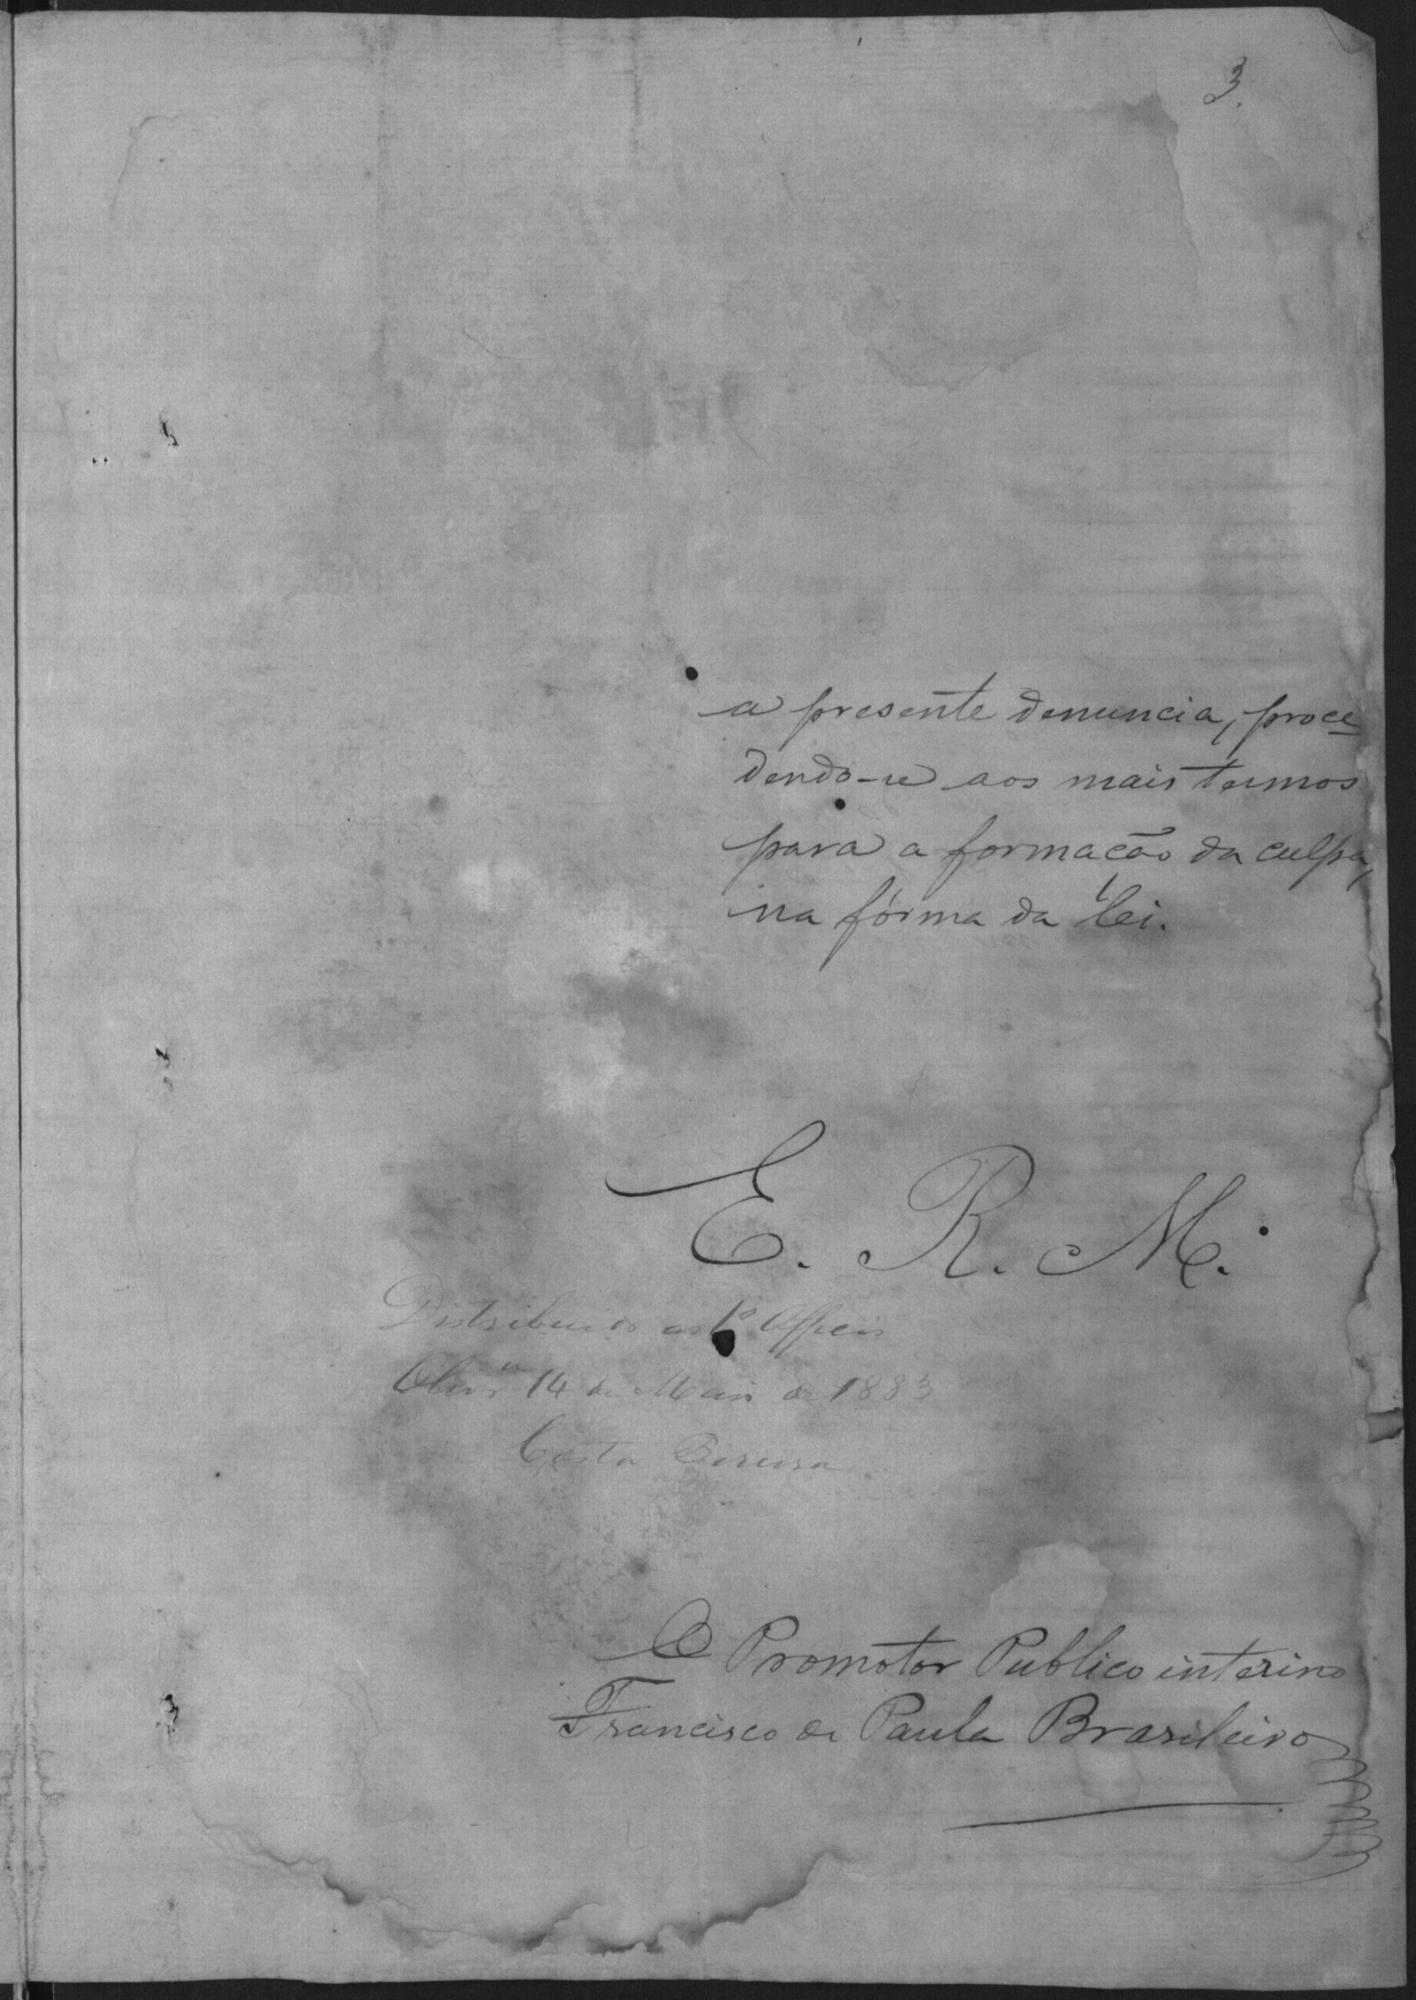 3.
a presente denuncia, proce
dendo-se aos mais termos
para a formação da culpa,
na fórma da lei.
E. R. M.
Distribuido ao 1º Officio
Olivrª 14 de Maio de 1883
Costa Pereira
O Promotor Publico interino
Francisco de Paula Brasileiro